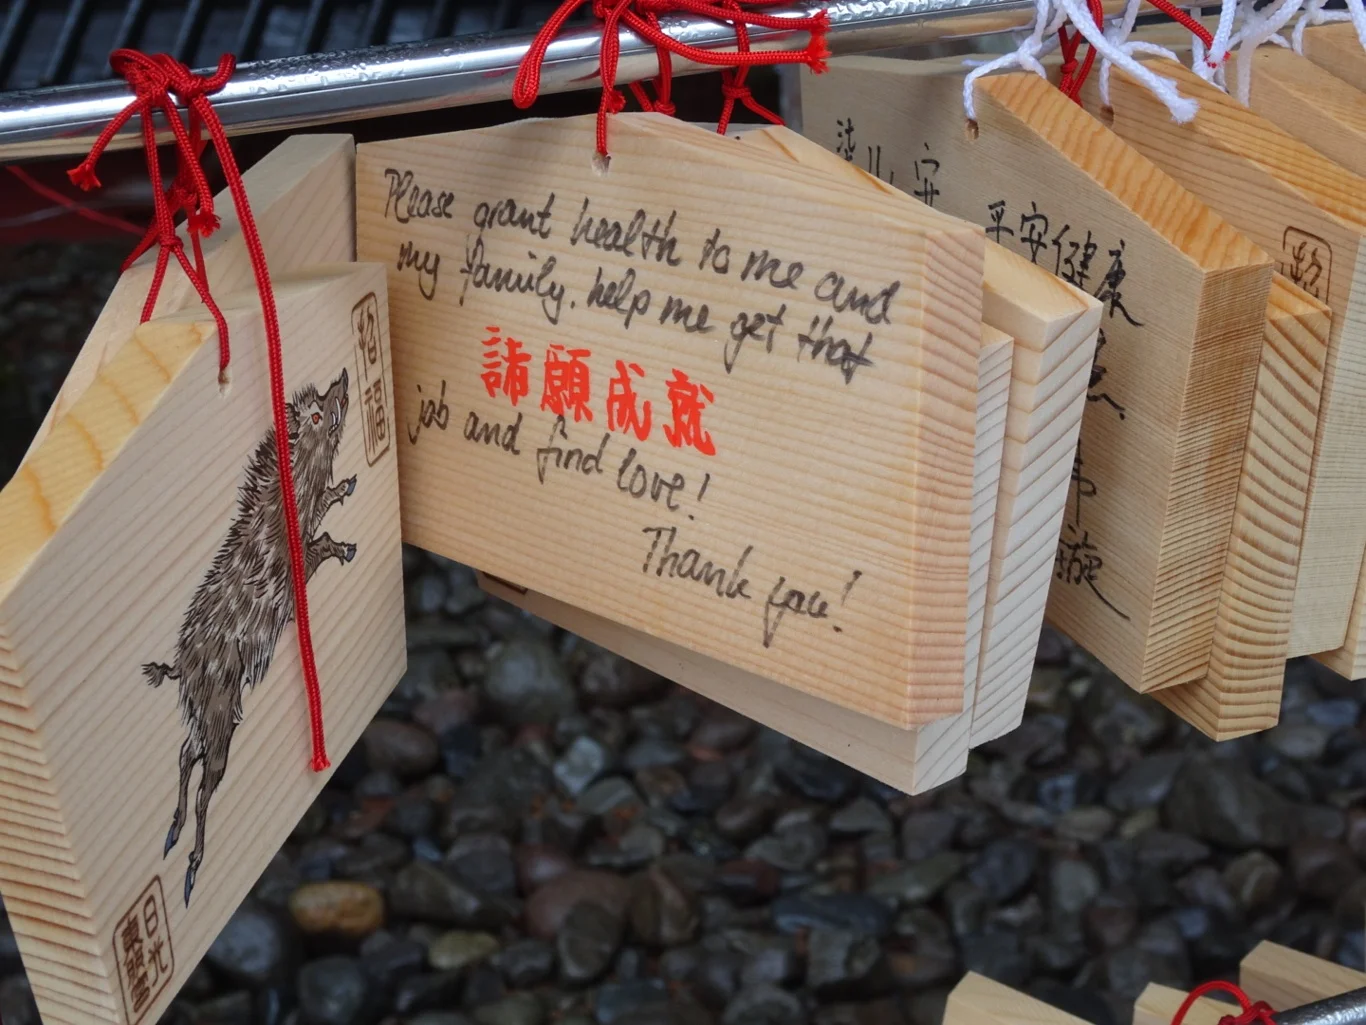 Please grant health to me and
my family. help me get that
諸願成就
job and find love!
Thank you!
招福
日光
東照宮
安
平安健康
招